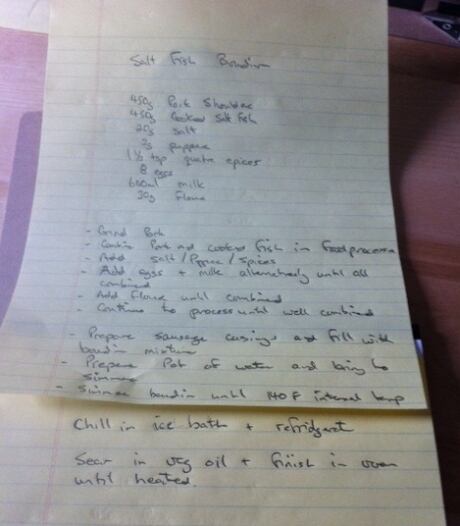 Salt Fish Boudin
450g Pork Shoulder
450g Cooked Salt Fish
20g Salt
3g pepper
1 1/2 tsp quatre epices
8 eggs
600ml milk
30g Flour
- Grind Pork
- Combine Pork and cooked fish in food processor
- Add salt/Pepper/spices
- Add eggs + milk alternatively until all
combined
- Add Flour until combined
- Continue to process until well combined
- Prepare sausage casings and fill with
boudin mixture
- Prepare Pot of water and bring to
simmer
- Simmer boudin until 140 F internal temp
Chill in ice bath + refridgerat
Sear in veg oil + finish in oven
until heated.